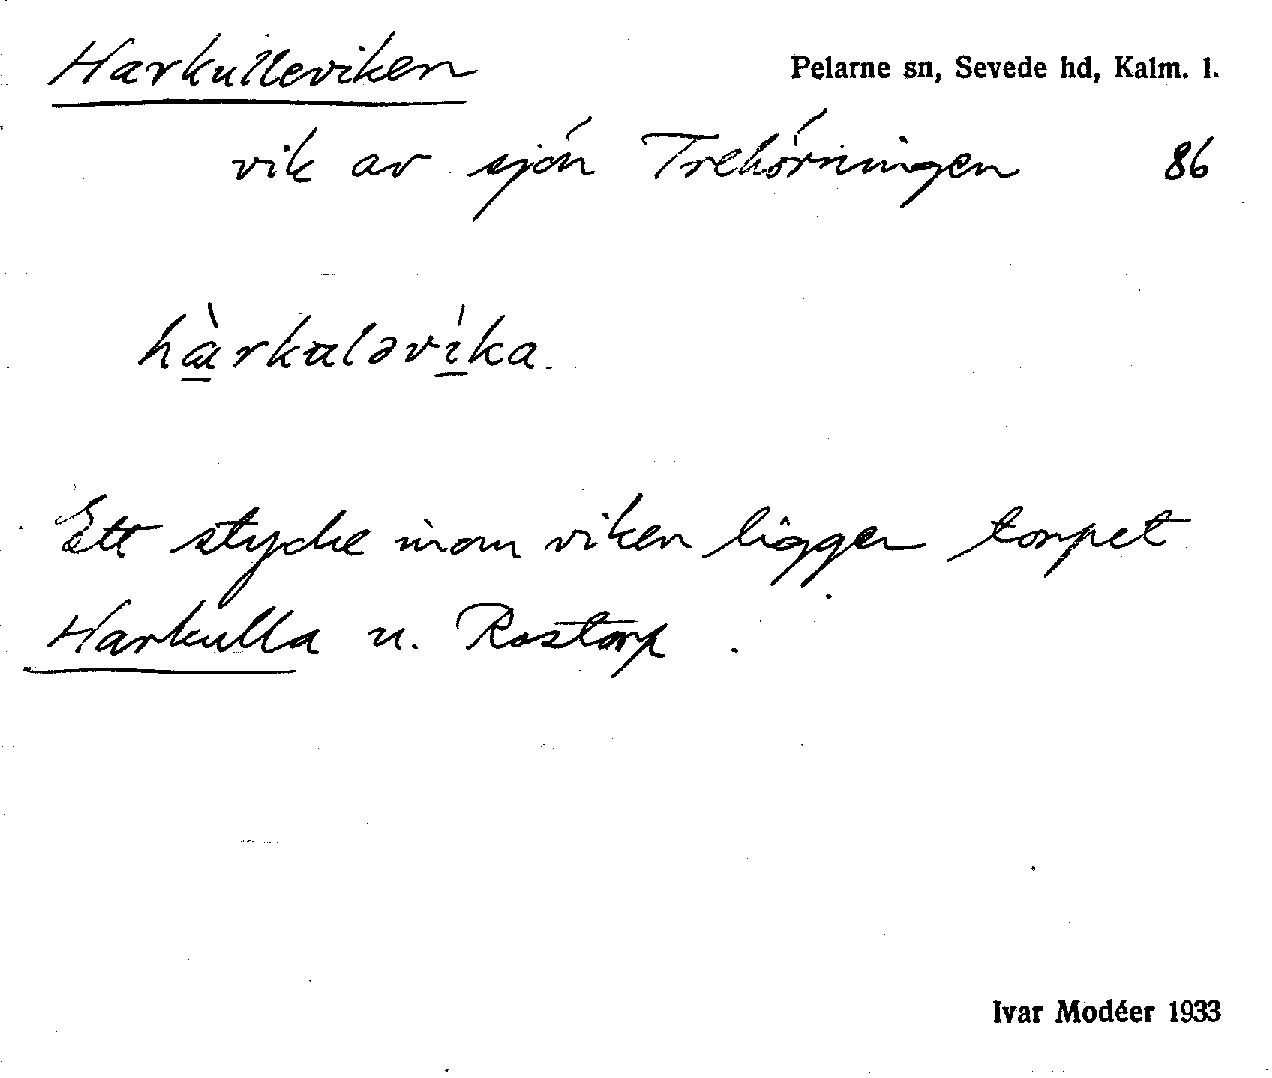 Harkulleviken
Pelarne sn, Sevede hd, Kalm. l.
vik av sjön Trehörningen 86
hàrkuləvíka.
Ett stycke inom viken ligger torpet
Harkulla u. Rostorp.
Ivar Modéer 1933